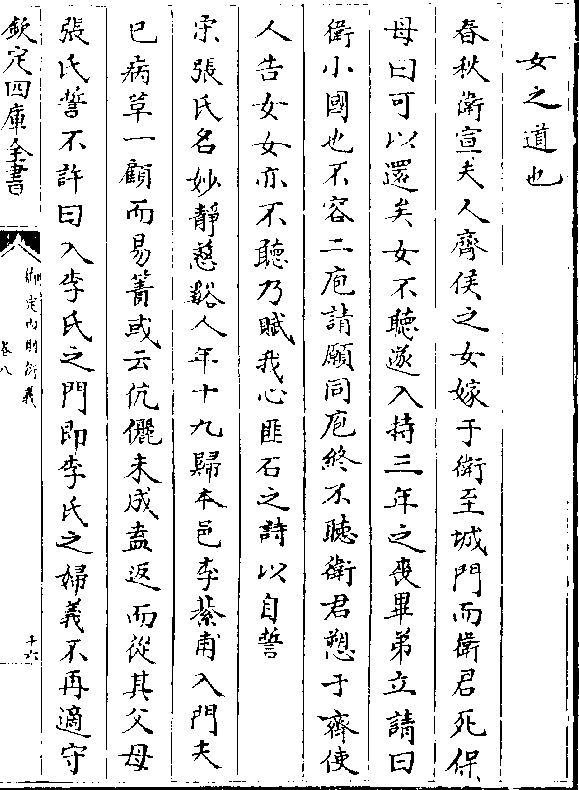 女之道也
春秋衛宣夫人齊侯之女嫁于衛至城門而衛君死保
母曰可以還矣女不聽遂入持三年之喪畢弟立請曰
衛小國也不容二庖請願同庖終不聽衛君愬于齊使
人告女女亦不聽乃賦我心匪石之詩以自誓
宋張氏名妙靜慈谿人年十九歸本邑李棻甫入門夫
已病草一顧而易簀或云伉儷未成盍返而從其父母
張氏誓不許曰入李氏之門即李氏之婦義不再適守
欽定四庫全書
御定內則衍義
卷八
十六